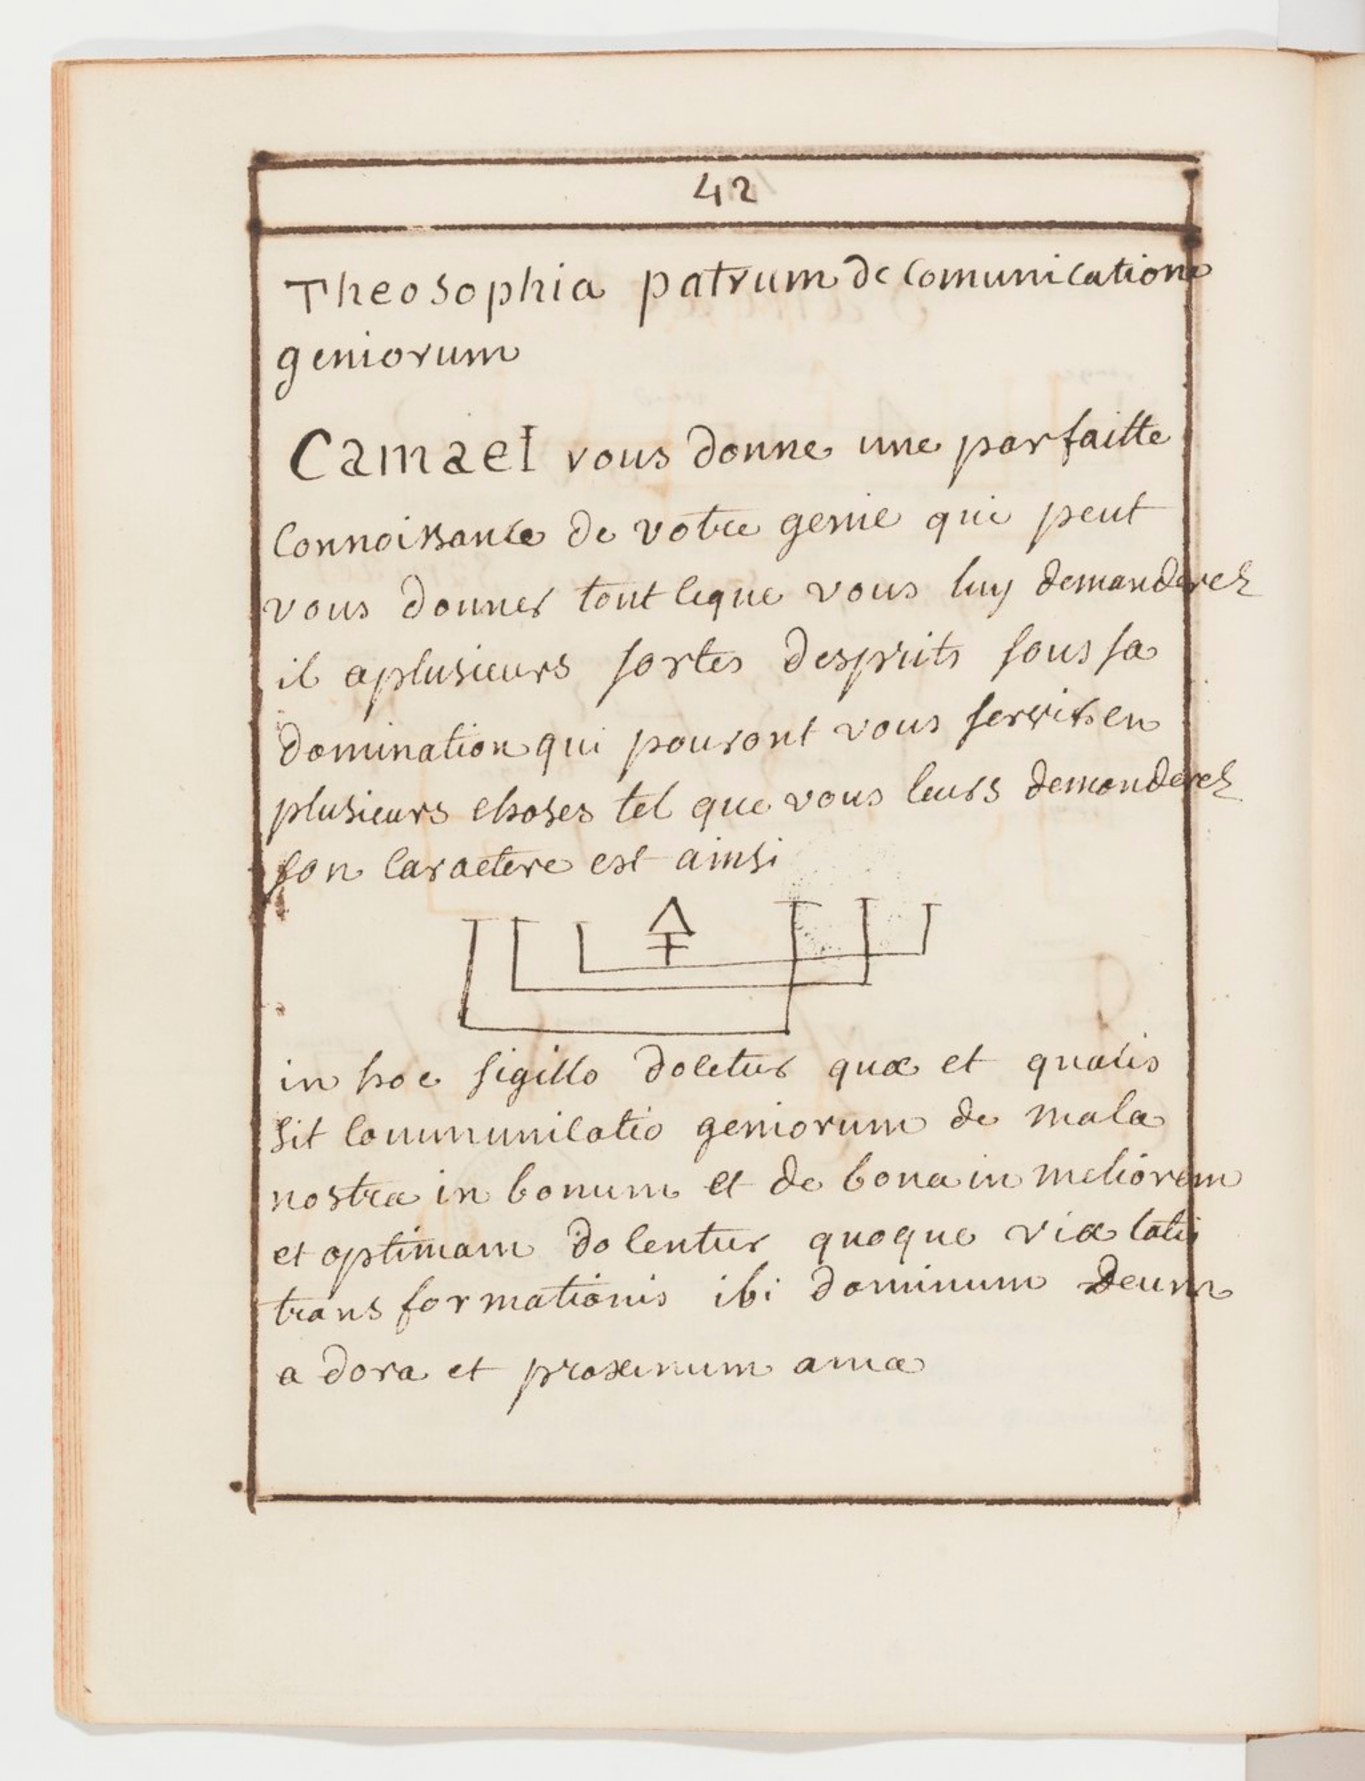 42
Theosophia patrum de comunicatione
geniorum
Camael vous donne une parfaitte
connoissance de votre genie qui peut
vous donner tout ceque vous luy demanderez
il aplusieurs sortes desprits sous sa
domination qui pouront vous servir en
plusieurs choses tel que vous leurs demanderez
son caractere est ainsi
in hoc sigillo docetur quæ et qualis
sit communicatio geniorum de mala
nostra in bonum et de bona in meliorem
et optimam docentur quoque viæ
transformationis ibi dominum Deum
adora et proximum ama